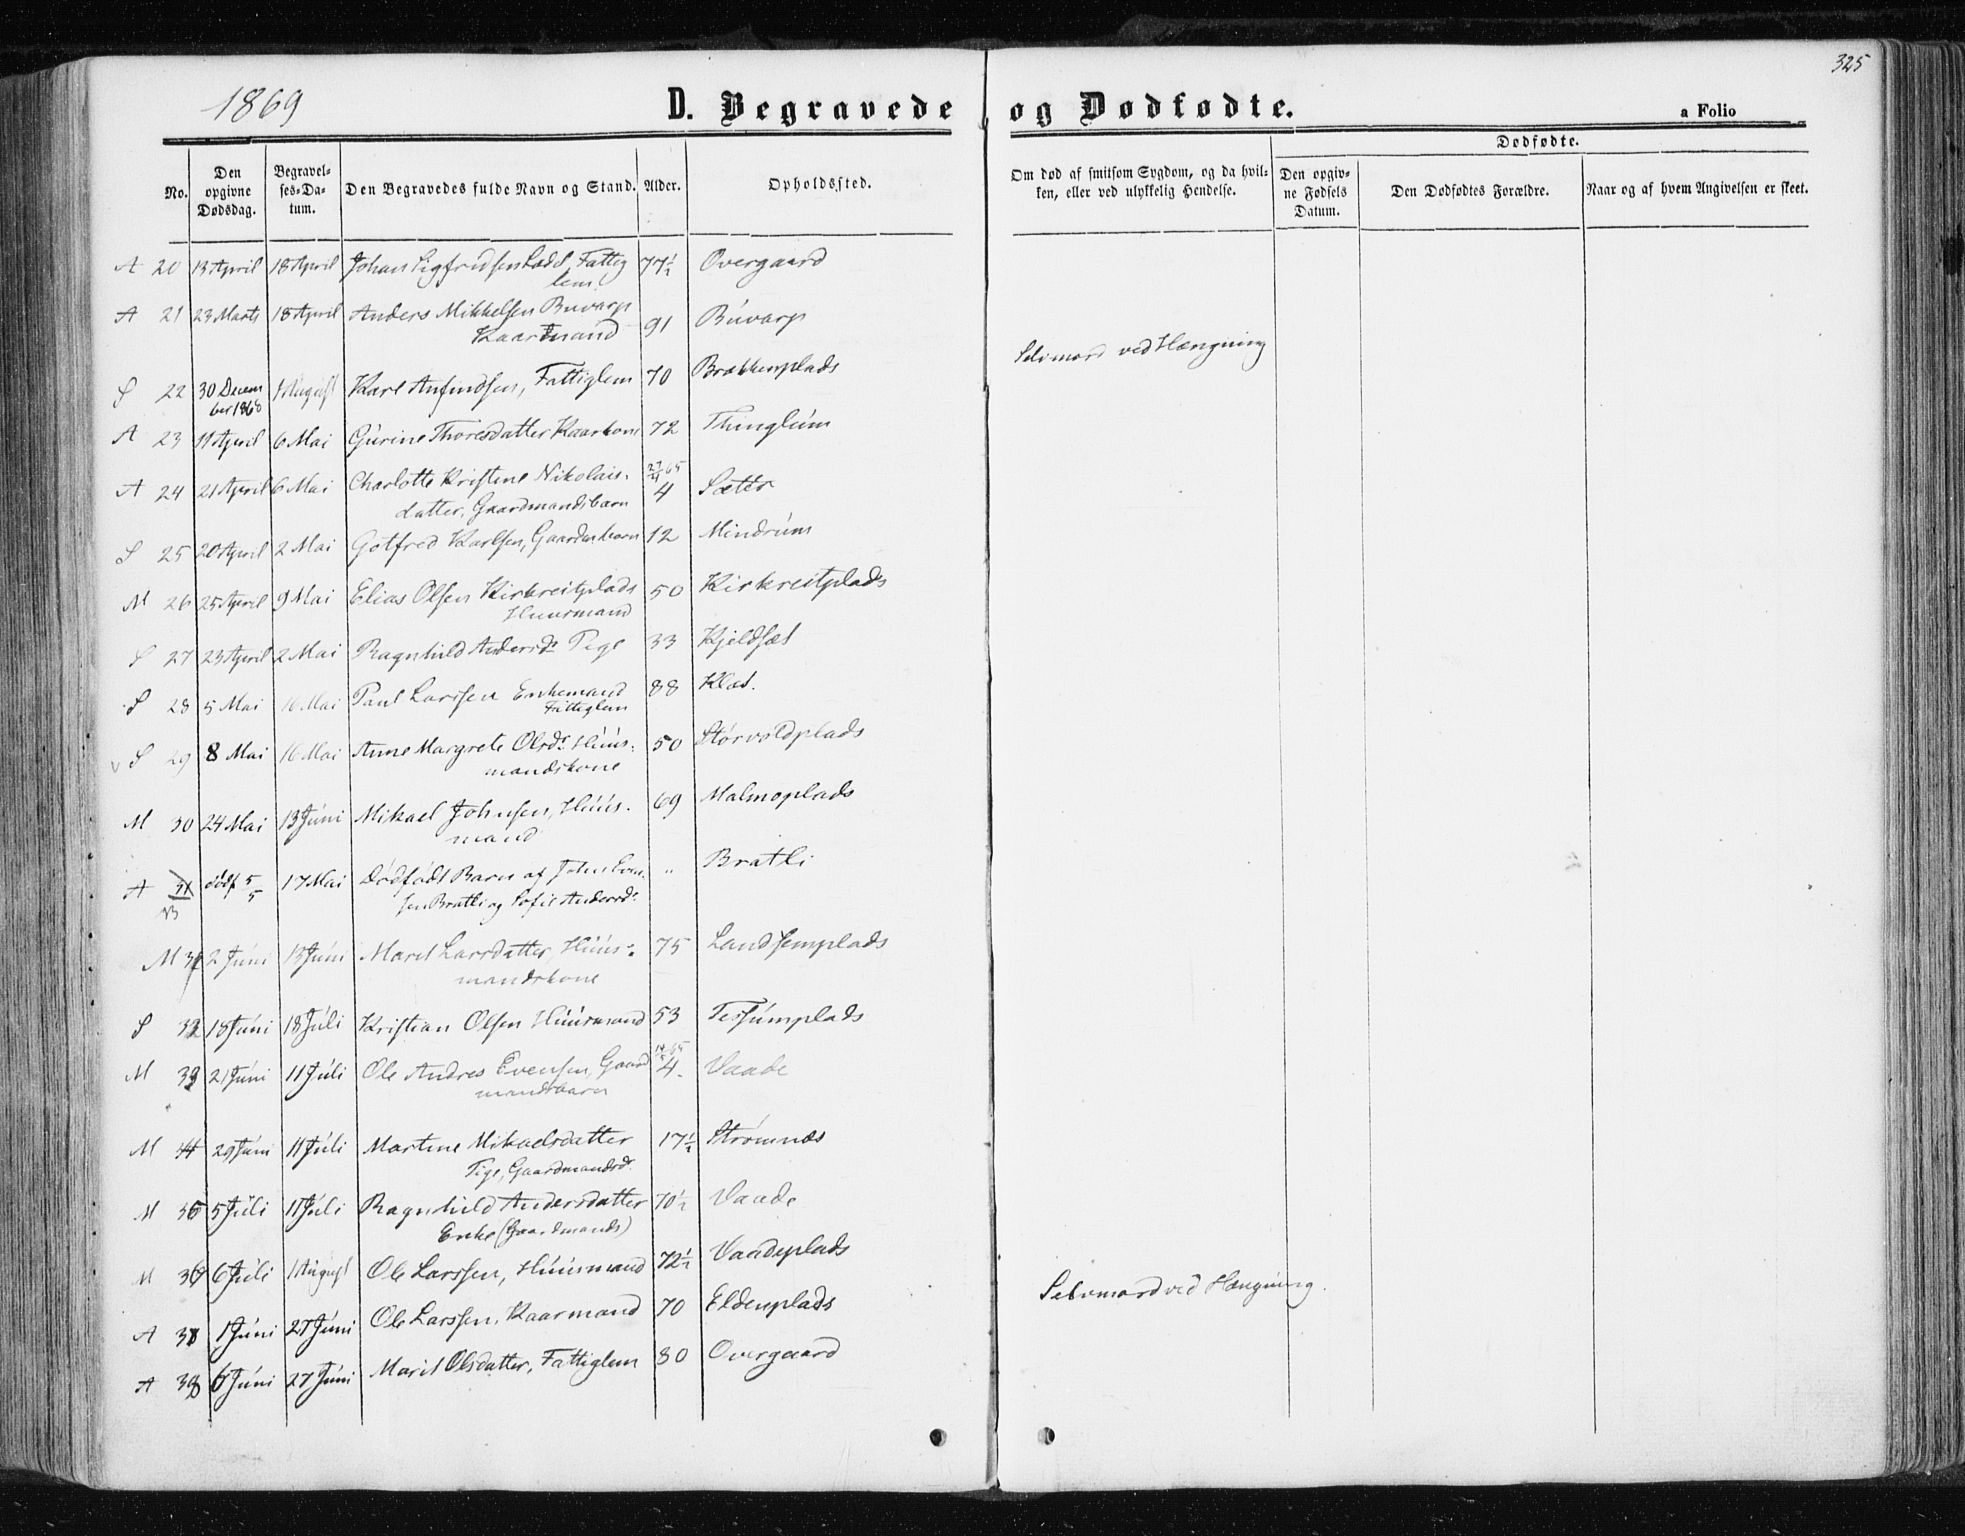 325
1869
D. Begravede og Dødfødte.
a Folio
No.
Den opgivne Dødsdag.
Begravelses-Datum.
Den Begravedes fulde Navn og Stand.
Alder.
Opholdssted.
Om død af smitsom Sygdom, og da hvilken, eller ved ulykkelig Hendelse.
Dødfødte.
Den opgivne Fødsels Datum.
Den Dødfødtes Forældre.
Naar og af hvem Angivelsen er skeet.
A 20 13 April 18 April Johan Sigfridsen Fattig 77½ Overgaard
lem
A 21 23 Marts 18 April Anders Mikkelsen Buvarp 91 Buvarp
Kaarmand
Selvmord ved Hængning
S 22 30 Decem 1 August Karl Anfindsen, Fattiglem 70 Brækkenplads
ber 1868
A 23 11 April 6 Mai Gurine Thoresdatter Kaarkone 72 Thinglum
A 24 21 April 6 Mai Charlotte Kristine Nikolais- 4 Sæter
datter, Gaardmandsbarn
S 25 20 April 2 Mai Gotfred Karlsen, 12 Mindrum
M 26 25 April 9 Mai Elias Olsen Kirkreitplads 50 Kirkreitplads
Huusmand
S 27 23 April 2 Mai Ragnhild Andersdr Pige 33 Kjeldsæt
S 28 5 Mai 16 Mai Paul Larssen Enkemand 88 Klæt.
Fattiglem
S 29 8 Mai 16 Mai Anne Margrete Olsdr Huus- 50 Størvoldplads
mandskone
M 30 24 Mai 13 Juni Mikael Johnsen, Huus- 69 Malmoplads
mand
A 31 dødf 5/5 17 Mai Dødfødt Barn af John Even- " Bratli
sen Bratli og Sofie Andersdr
M 31 2 Juni 13 Juni Marit Larsdatter, Huus- 75 Landsemplads
mandskone
S 32 18 Juni 18 Juli Kristian Olsen Huusmand 53 Tessumplads
M 33 21 Juni 11 Juli Ole Andres Evensen, Gaard 4 Vaade
mandsbarn
M 29 Juni 11 Juli Martine Mikaelsdatter 17½ Strømnæs
Pige, Gaardmandsdr
M 5 Juli 11 Juli Ragnhild Andersdatter 70½ Vaade
Enke (Gaardmands)
M 6 Juli 1 August Ole Larssen, Huusmand 72½ Vaadeplads
A 1 Juni 27 Juni Ole Larssen, Kaarmand 70 Eldenplads Selvmord ved Hængning.
A 6 Juni 27 Juni Marit Olsdatter, Fattiglem 80 Overgaard